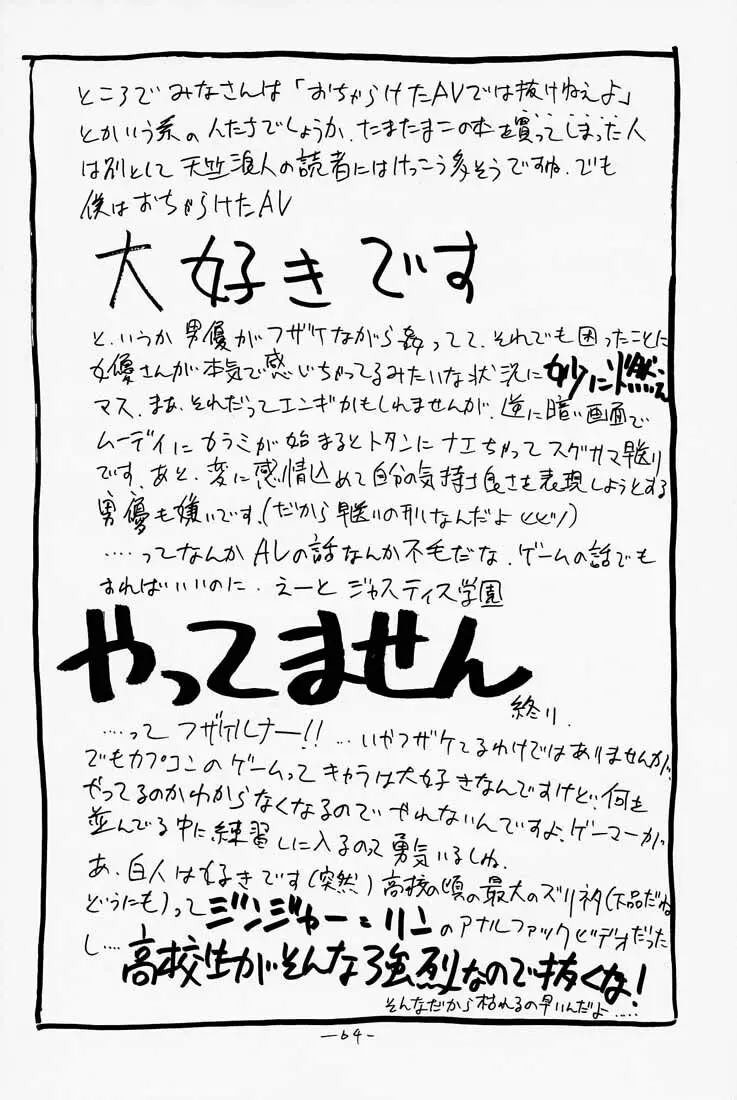 ところでみなさんは「おちゃらけたAVでは抜けねえよ」
とかいう系の人たちでしょうか、たまたまこの本を買ってしまった人
は別として天竺浪人の読者にはけっこう多そうですね。でも
僕はおちゃらけたAV
大好きです
と、いうか男優がフザケながら姦ってて、それでも困ったことに
女優さんが本気で感じちゃってるみたいな状況に妙に燃え
マス、まあ、それだってエンギかもしれませんが、逆に暗い画面で
ムーディにカラミが始まるとトタンにナエちゃってスグサマ早送り
です、あと、変に感情込めて自分の気持ち良さを表現しようとする
男優も嫌いです、(だから早送りの刑なんだよ
‥‥ってなんかAVの話なんか不毛だな、ゲームの話でも
すればいいのに、えーと ジャスティス学園
やってません
終り.
‥‥って フザケルナー!! …いやフザケてるわけではありませんが、
でもカプコンのゲームって キャラは大好きなんですけど、何を
やってるのかわからなくなるので やれないんですよ、ゲーマーが
並んでる中に練習しに入るのって勇気いるしね、
あ、白人は好きです(突然)高校の頃の最大のズリネタ(下品だね
どうにも)って ジンジャー=リン のアナルファックビデオだった
し‥‥ 高校生がそんな強烈なので抜くな!
そんなだから枯れるの早いんだよ‥‥
—64-